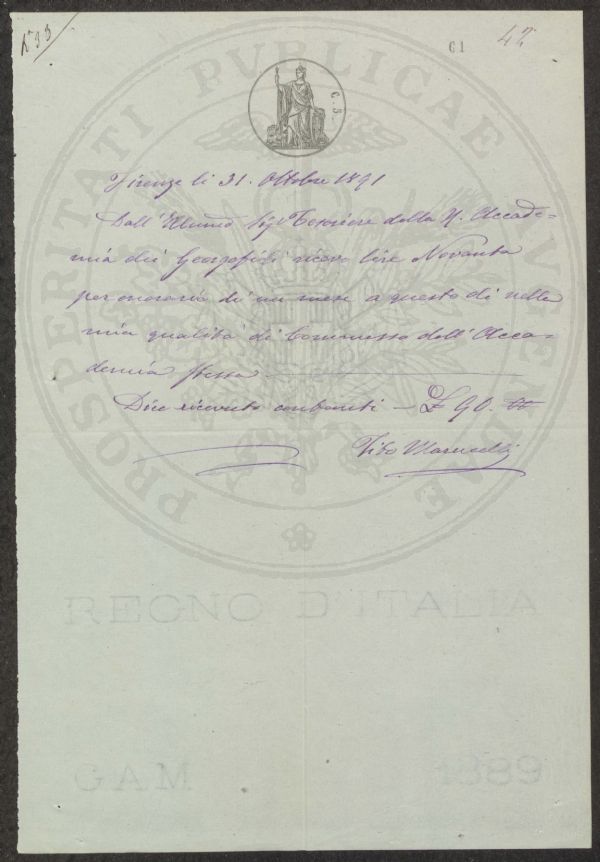 N° 33
61
42
PROSPERITATI PVBLICAE AVGENDAE
C. 5.
Firenze li 31. Ottobre 1891
Dall' Illmo Sigr Tesoriere della R. Accade=
mia dei Georgofili ricevo lire Novanta
per onorario di un mese a questo dì nella
mia qualità di Commesso dell' Acca=
demia stessa
Dico ricevuto contanti — £ 90. "
Vito Marucelli
REGNO D'ITALIA
GAM 1889